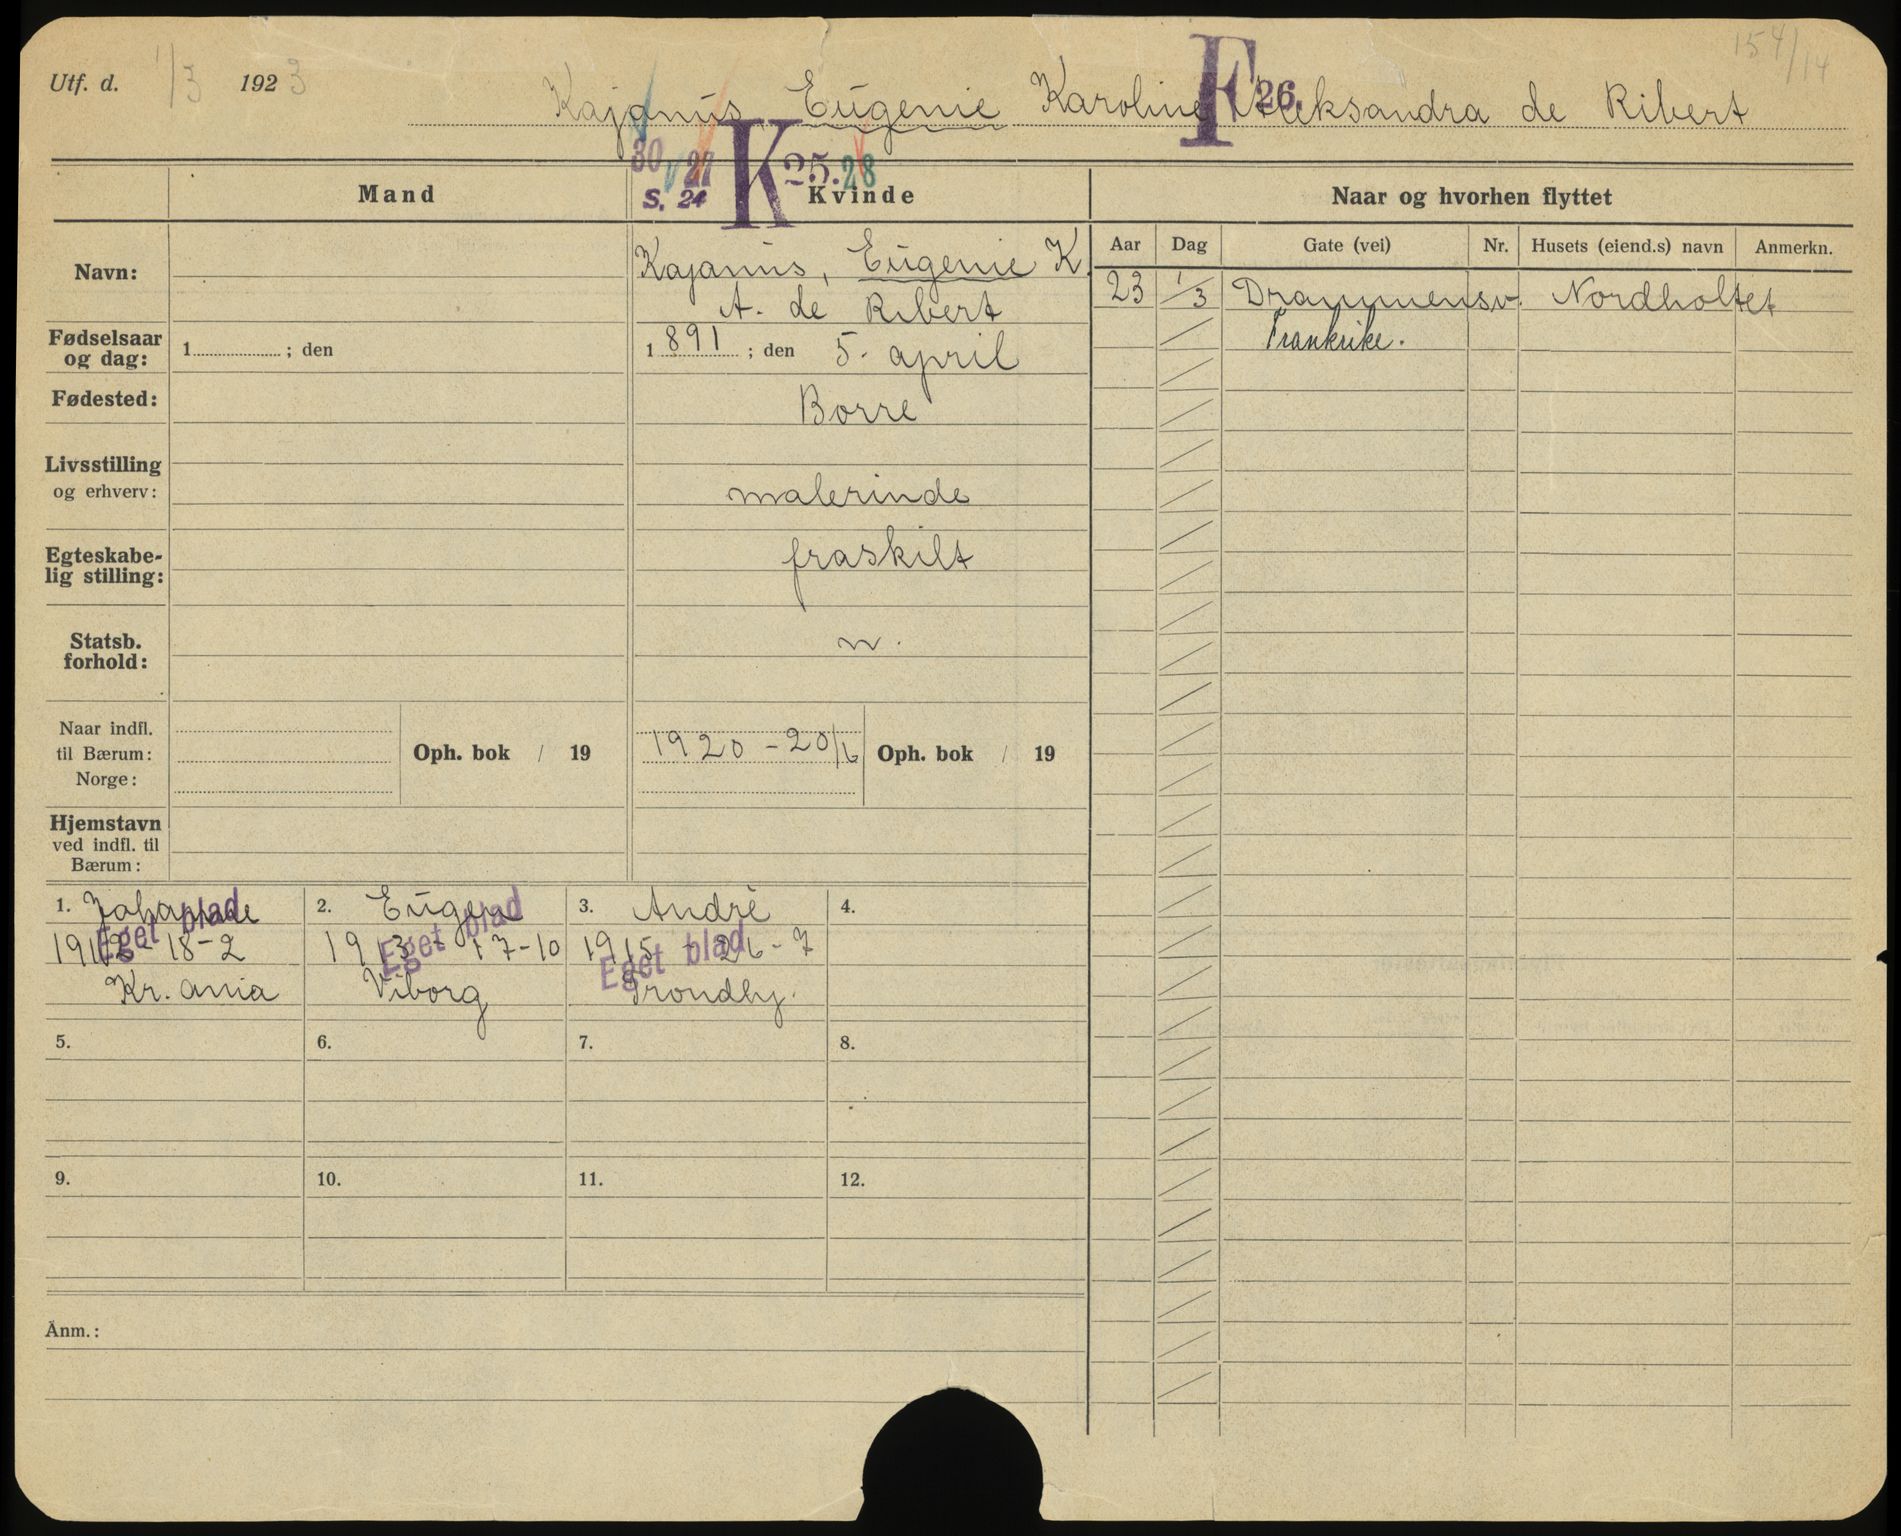 154/14
Utf. d. 1/3 1923 Kajanus Eugenie Karoline Aleksandra de Ribert
F 26.
30 27 K 25. 28
S. 24
Mand Kvinde Naar og hvorhen flyttet
Aar Dag Gate (vei) Nr. Husets (eiend.s) navn Anmerkn.
Navn: Kajanus, Eugenie K.
A. de Ribert
23 1/3 Drammensv. Nordholtet
Frankrike.
Fødselsaar
og dag: 1 ; den 1891 ; den 5. april
Fødested: Borre
Livsstilling
og erhverv: malerinde
Egteskabe-
lig stilling: fraskilt
Statsb.
forhold: n.
Naar indfl.
til Bærum: Oph. bok / 19 1920 - 20/6 Oph. bok / 19
Norge:
Hjemstavn
ved indfl. til
Bærum:
1. Johanne 2. Eugen 3. Andrè 4.
Eget blad Eget blad Eget blad
1912 - 18-2 1913 - 17-10 1915 - 26-7
Kr.ania Viborg Trondhj.
5. 6. 7. 8.
9. 10. 11. 12.
Anm.: